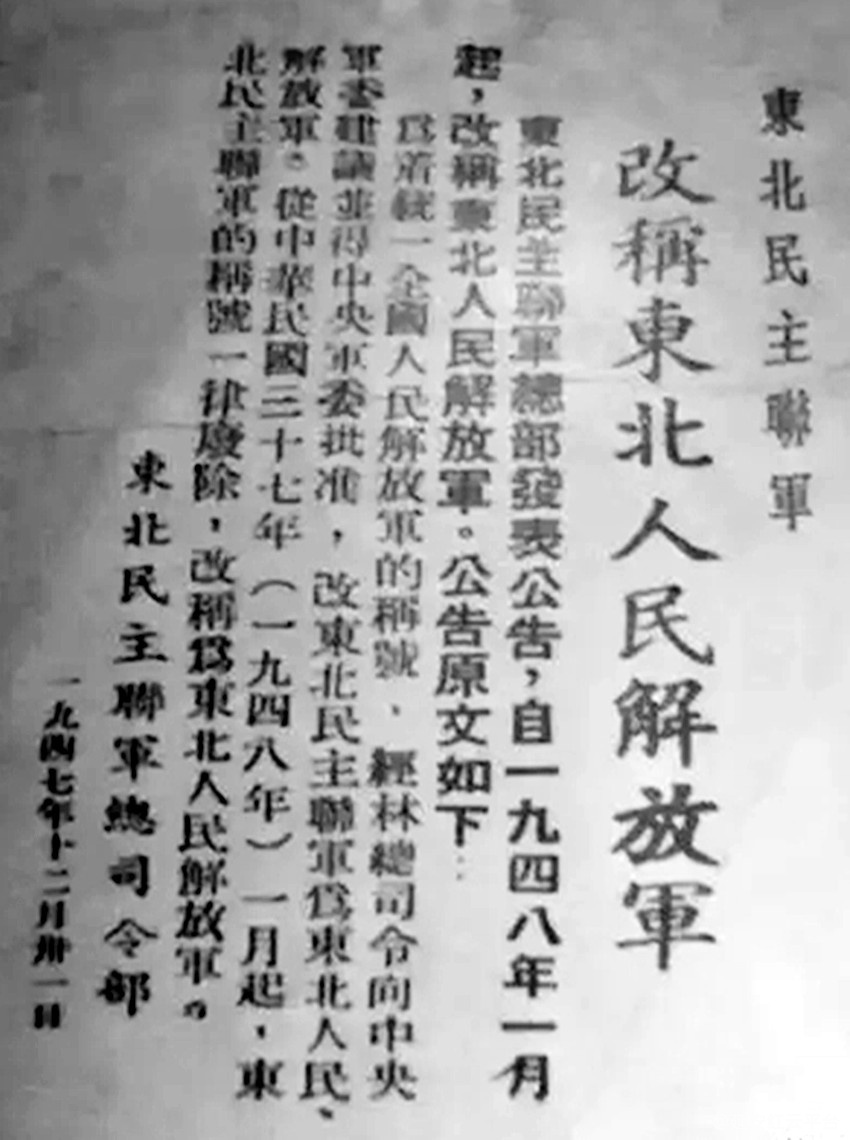 東北民主聯軍
改稱東北人民解放軍
東北民主聯軍總部發表公告，自一九四八年一月
起，改稱東北人民解放軍。公告原文如下：
爲着統一全國人民解放軍的稱號，經林總司令向中央
軍委建議並得中央軍委批准，改東北民主聯軍爲東北人民、
解放軍。從中華民國三十七年（一九四八年）一月起，東
北民主聯軍的稱號一律廢除，改稱爲東北人民解放軍。
東北民主聯軍總司令部
一九四七年十二月卅一日